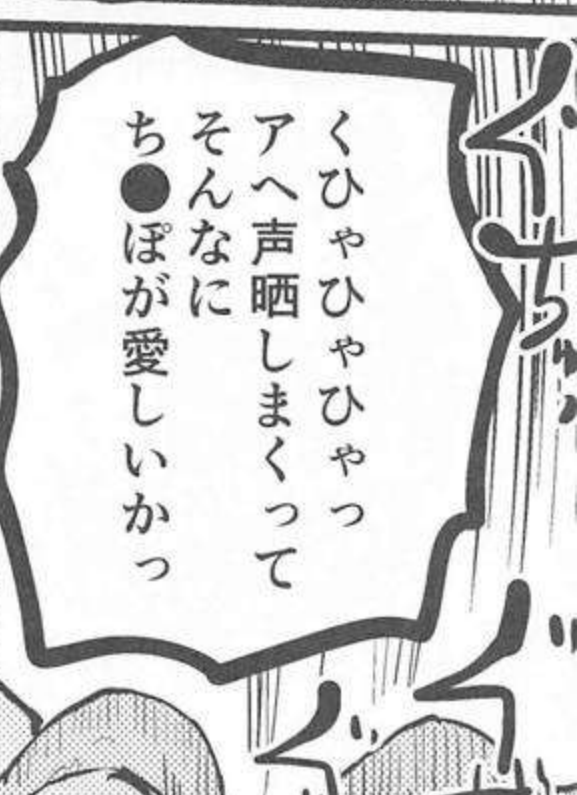 くひゃひゃひゃっ
アヘ声晒しまくって
そんなに
ち●ぽが愛しいかっ
ぐちゅ